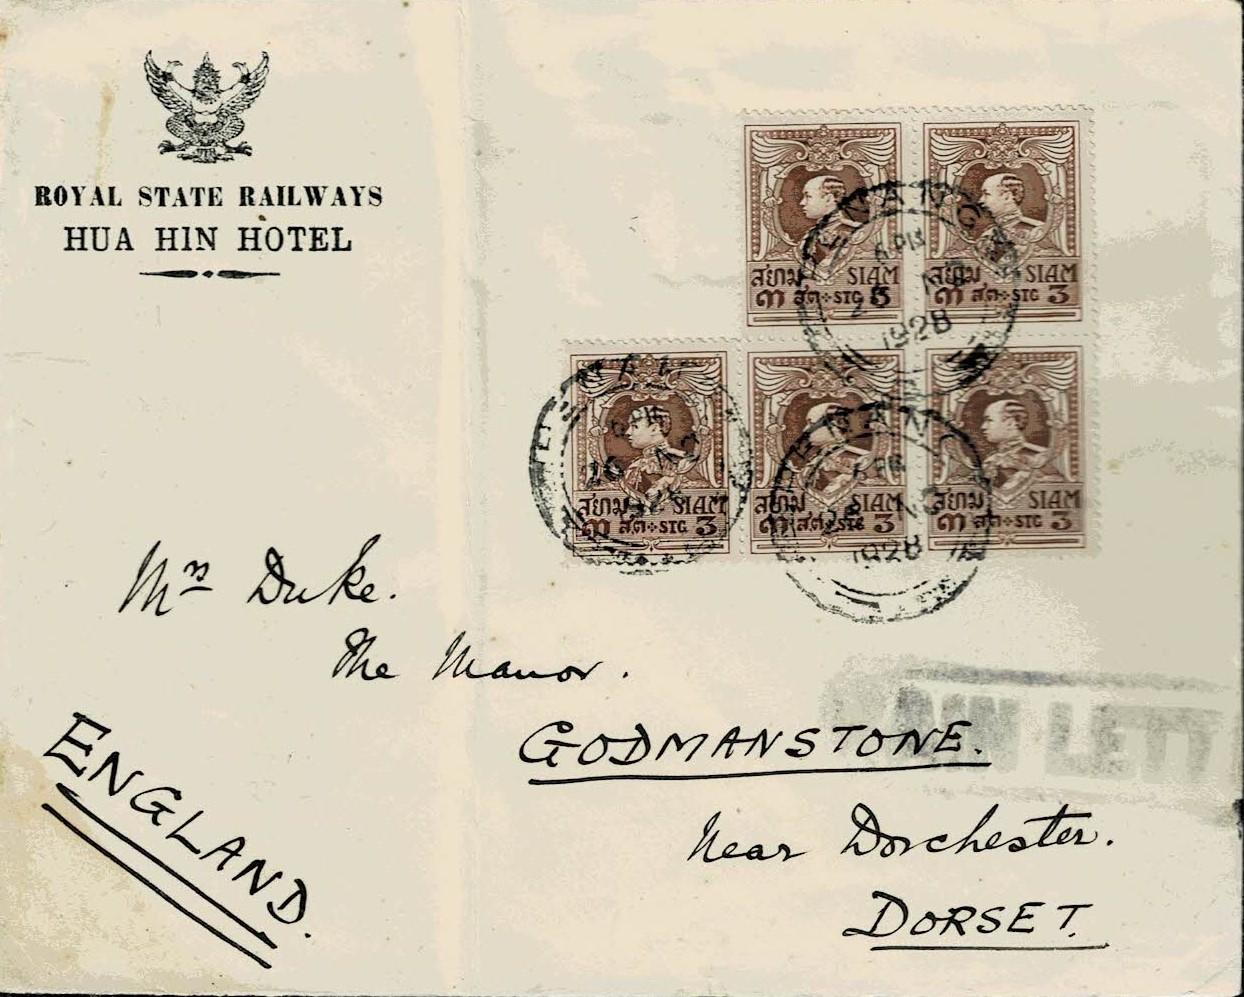 ROYAL STATE RAILWAYS
HUA HIN HOTEL
สยาม SIAM
๓ สต. STG 3
สยาม SIAM
๓ สต. STG 3
สยาม SIAM
๓ สต. STG 3
สยาม SIAM
๓ สต. STG 3
สยาม SIAM
๓ สต. STG 3
PENANG
6 PM
1928
PENANG
1928
Mrs Duke.
The Manor.
GODMANSTONE.
Near Dorchester.
DORSET.
ENGLAND.